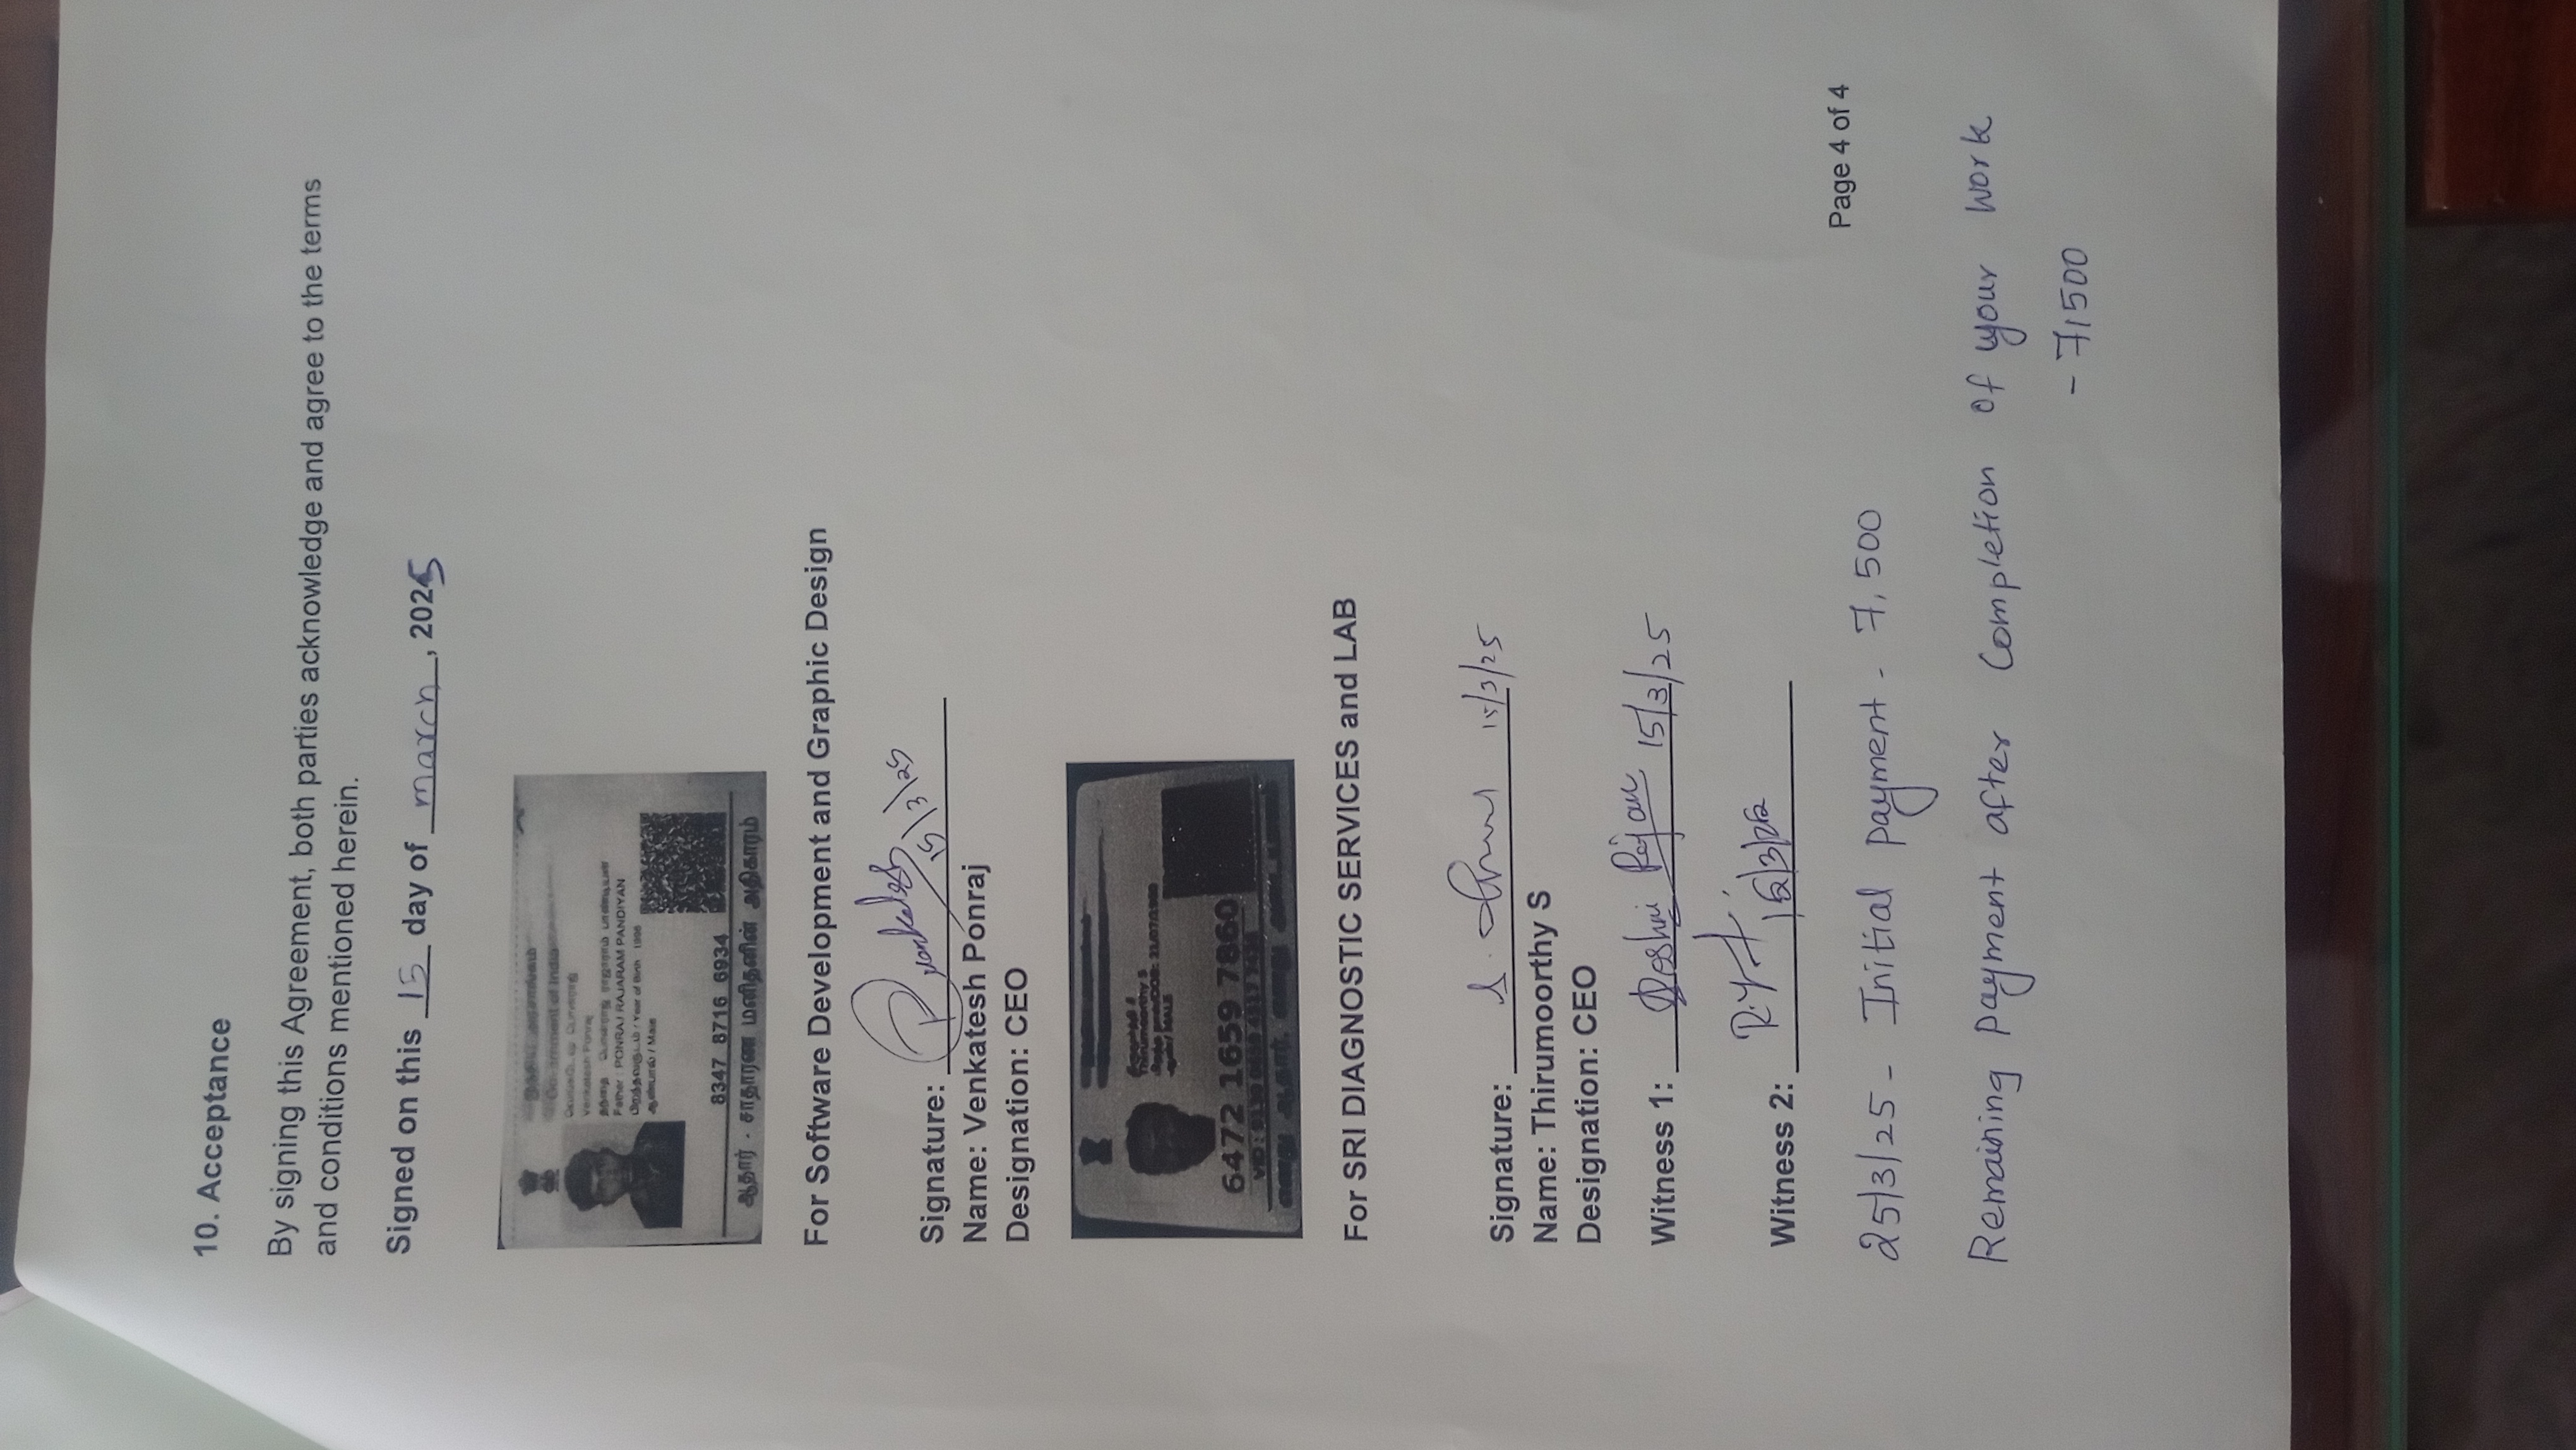 10. Acceptance
By signing this Agreement, both parties acknowledge and agree to the terms
and conditions mentioned herein.
Signed on this 15 day of march, 2025
Venkatesh Ponraj
Father : PONRAJ RAJARAM PANDIYAN
/ Year of Birth 1996
/ Male
8347 8716 6934
ஆதார் - சாதாரண மனிதனின் அதிகாரம்
For Software Development and Graphic Design
Signature: 15/3/25
Name: Venkatesh Ponraj
Designation: CEO
Thirumoorthy S
/ MALE
6472 1659 7860
For SRI DIAGNOSTIC SERVICES and LAB
Signature: 15/3/25
Name: Thirumoorthy S
Designation: CEO
Witness 1: 15/3/25
Witness 2:
Page 4 of 4
25/3/25 - Initial payment - 7,500
Remaining payment after Completion of your work
- 7,500